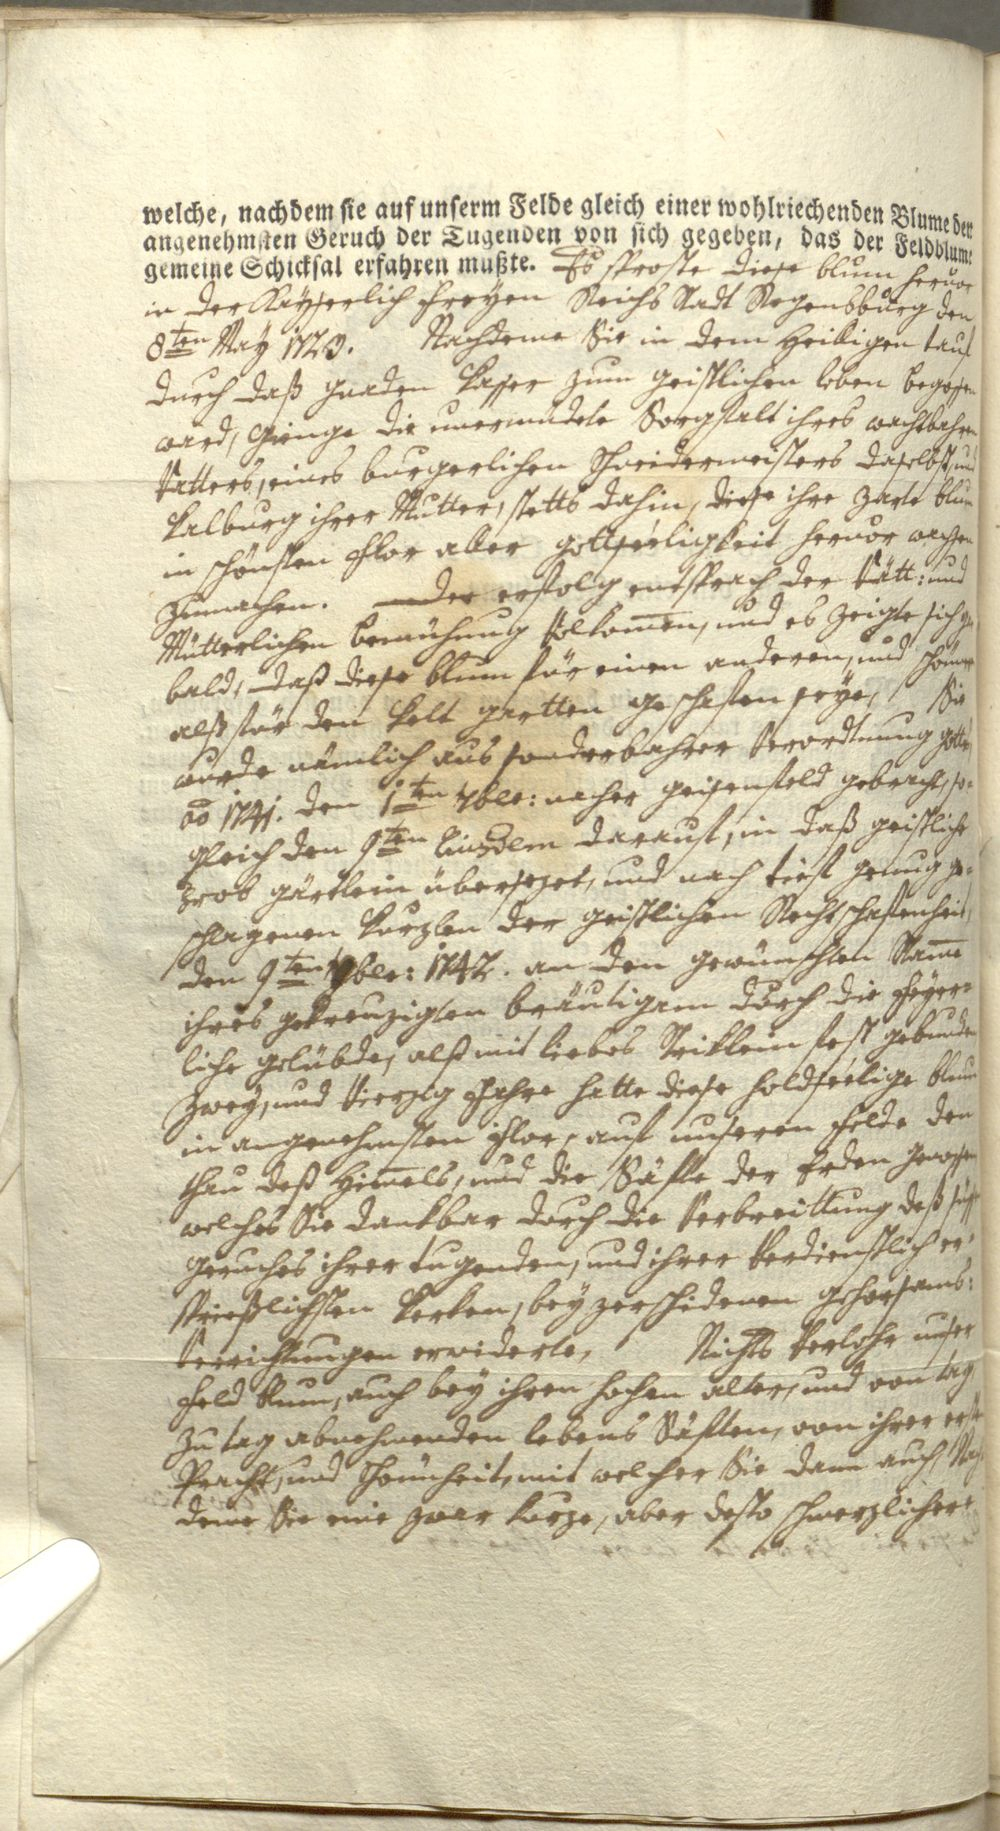 welche, nachdem sie auf unserm Felde gleich einer wohlriechenden Blume den
angenehmsten Geruch der Tugenden von sich gegeben, das der Feldblume
gemeine Schicksal erfahren mußte. Es sproste diese blum hervor
in der Kayserlich freyen Reichs Stadt Regensburg den
8ten May 1723. Nachdeme Sie in dem Heiligen tauf
durch daß gnaden Wasser zum geistlichen leben begossen
ward, gienge die unermüdete Sorgfalt ihres wachtbahren
Vatters, eines burgerlichen Schneidermeisters daselbst, und
Walburg ihrer Mutter, stetts dahin, diese ihre zarte blum
in schönsten Flor aller gottseeligkeit hervor wachsen
zumachen. Der erfolg entsprach der Vätt: und
Mütterlichen bemühung volkomen, und es zeigte sich gar
bald, daß diese blum für einen anderen, und schönern
alß für den Welt gartten geschaffen seye, Sie
wurde nämlich aus sonderbahrer Verordnung gottes
ao 1741. den 1ten 7bre: nacher geisenfeld gebracht, so-
gleich den 9ten darauf, in daß geistliche
Prob gärtlein übersezet, und nach tieff genug ge-
schlagenen Wurzlen der geistlichen Rechtschaffenheit,
den 9ten 9bre: 1742. an den gewünschten Stamme
ihres gekreuzigten bräutigam durch die feyer-
liche gelübde, alß mit liebes Striklein fest gebunden
Zwey, und Vierzig Jahre hatte diese holdseelige blum
in angenehmsten Flor, auf unseren Felde den
thau deß Himels, und die Säffte der Erden genossen
welches Sie dankbar durch die Verbreittung deß süssen
geruches ihrer tugenden, und ihrer Verdienstlich er-
sprießlichsten Werken, bey zerschidenen gehorsams-
Verrichtungen erwiderte, Nichts Verlohr unser
Feld blum, auch bey ihren hochen alter, und von tag
zu tag abnehmenden lebens Säfften, von ihrer ersten
Pracht, und Schönheit, mit welcher Sie dann auch, Nach-
deme Sie eine zwar kurze, aber desto schmerzlichere